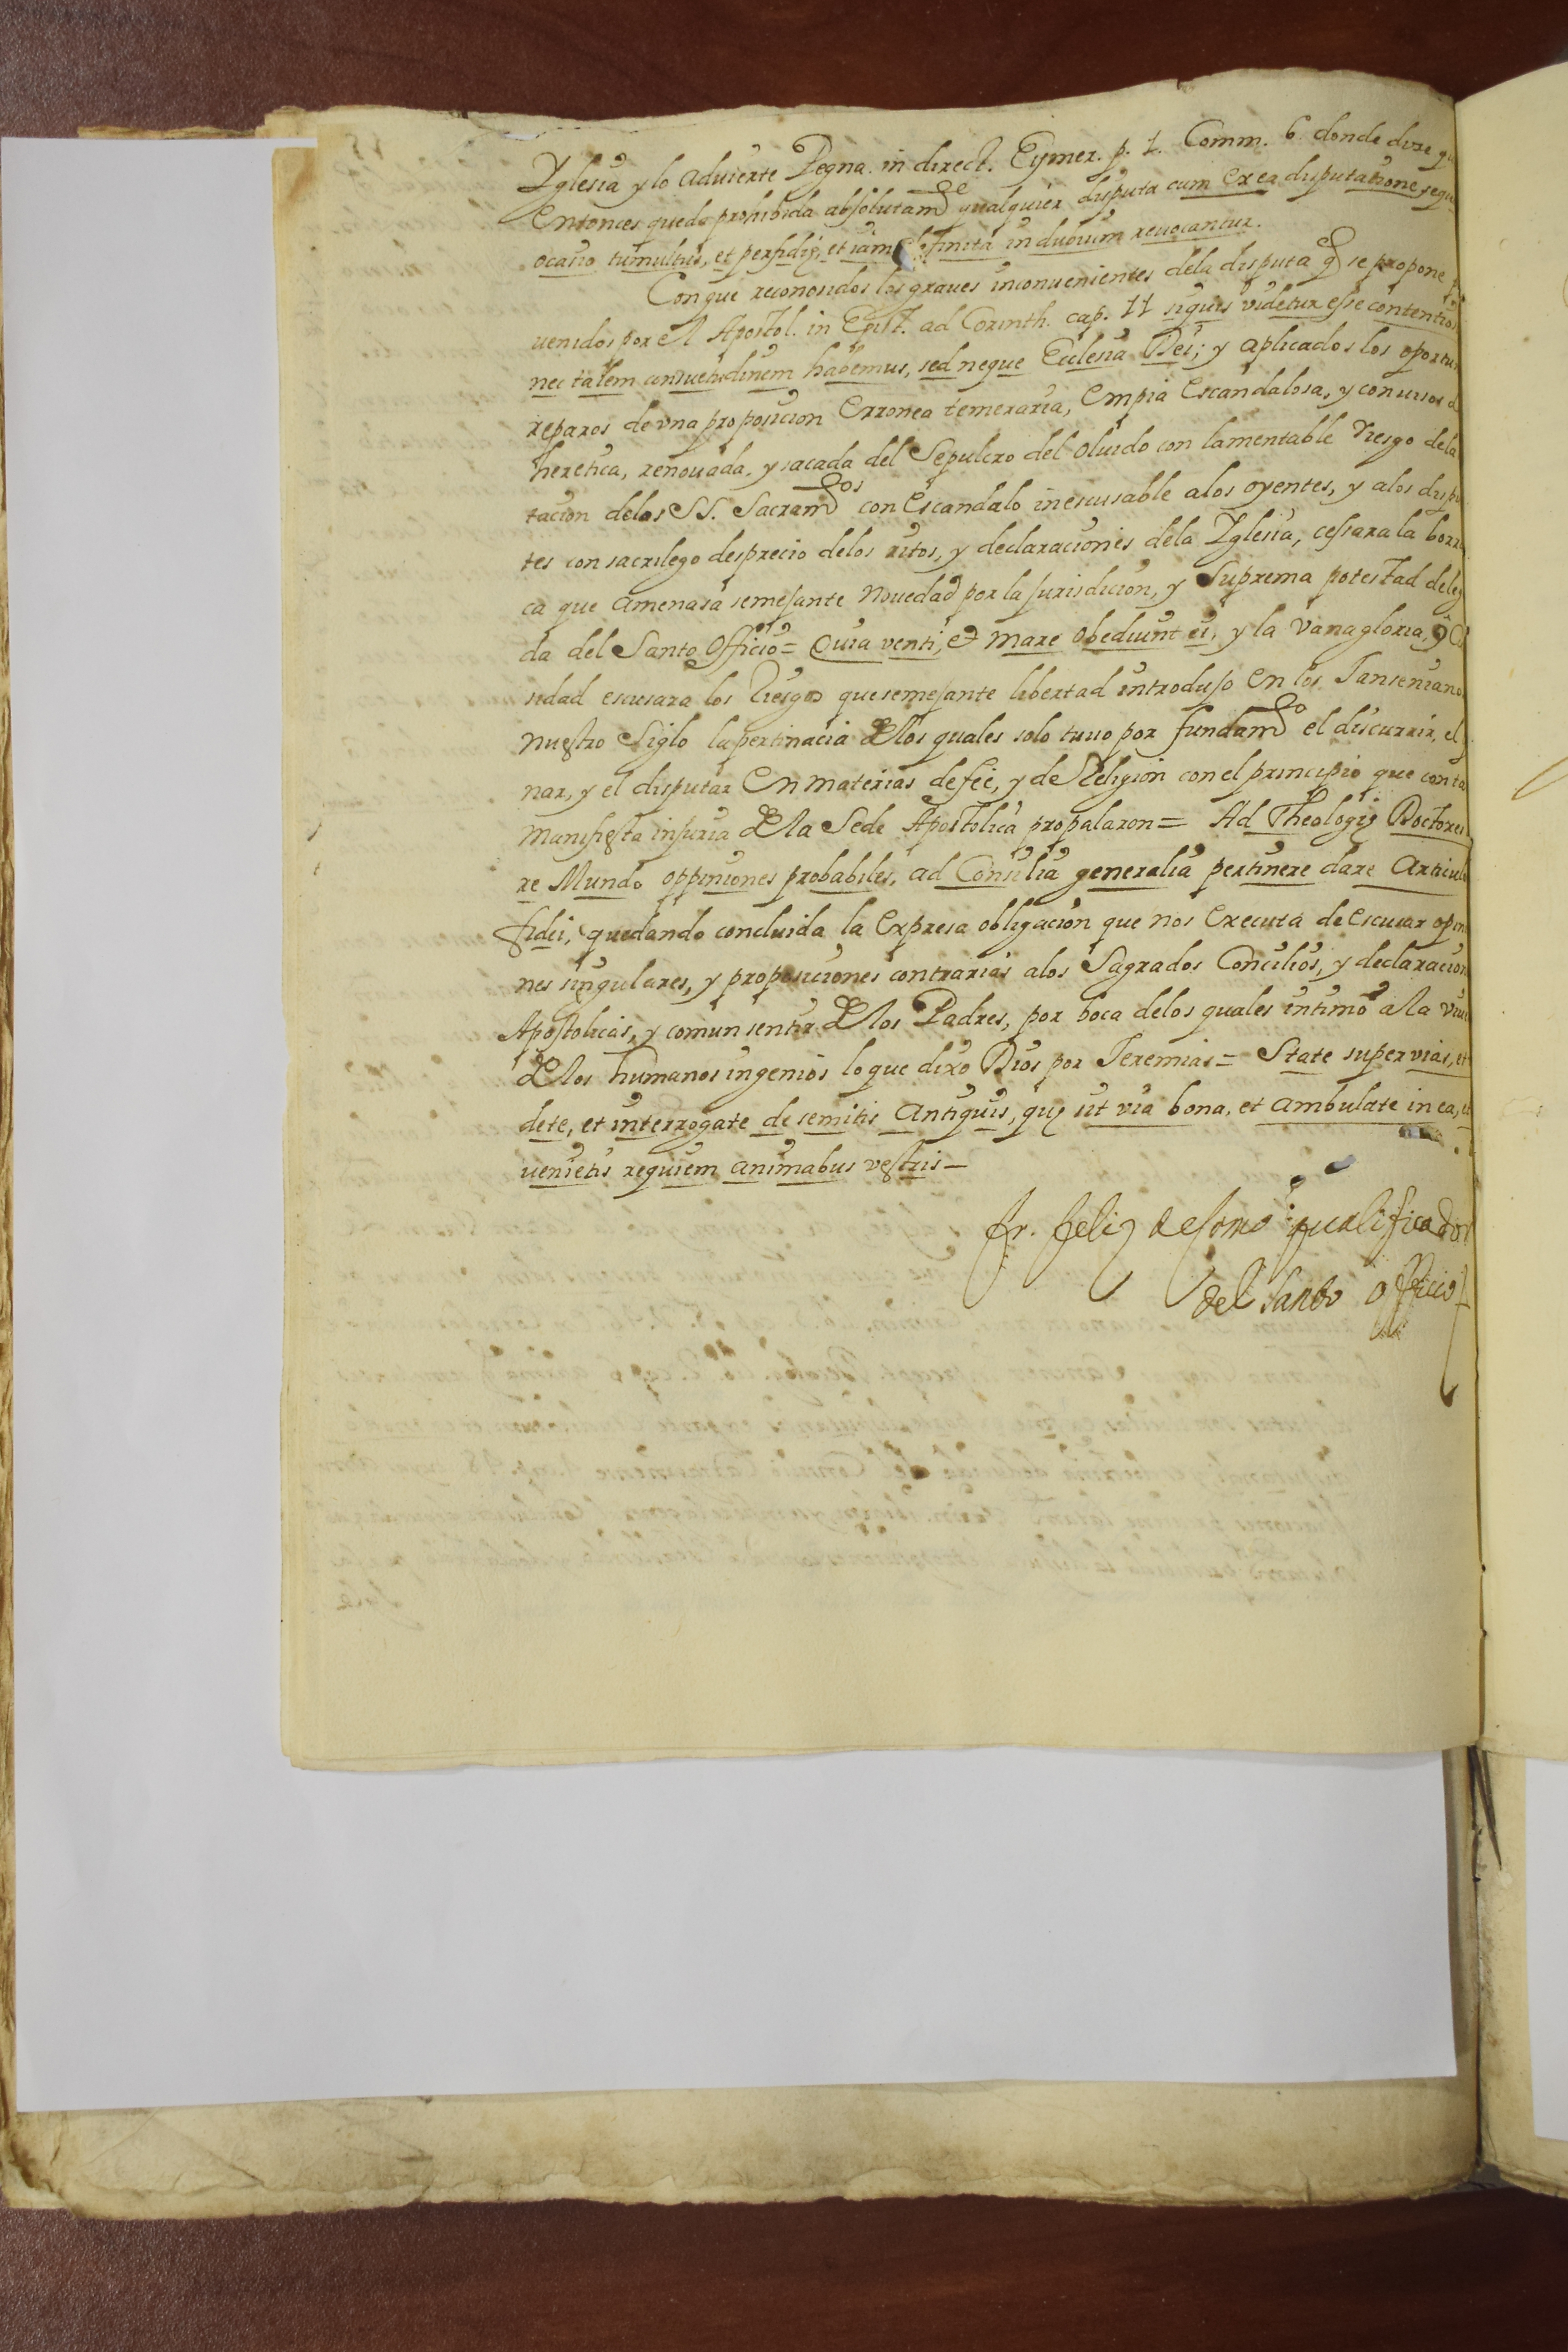 Yglesia y lo aduierte Pegna. in direct. Eymer. p. 1. Comm. 6. donde dize
Entonces queda prohibida absolutamᵗᵉ qualquier disputa cum ex ea disputatione
ocasio tumultus, et perfidię, et iam definita in dubium reuocantur.
Con que reconosidos los graues inconuenientes dela disputa q̃ se propone
uenidos por el Apostol. in Epist. ad Corinth. cap. 11 siquis videtur esse
nec talem consuetudinem habemus, sed neque Ecclesia Dei; y aplicados los
reparos de vna proposicion Erronea temeraria, Empia Escandalosa, y con visos
heretica, renouada, y sacada del Sepulcro del oluido con lamentable riesgo dela
tacion delos SS. Sacramᵗᵒˢ con Escandalo inescusable alos oyentes, y alos
tes con sacrilego desprecio delos ritos, y declaraciones dela Yglesia, cessara la
ca que amenasa semejante nouedad por la jurisdicion, y Suprema potestad
da del Santo Officio = Quia venti, et mare obediunt ei, y la vanagloria,
sidad escusara los Riesgos que semejante libertad introdujo en los
nuestro Siglo la pertinacia delos quales solo tuuo por fundamᵗᵒ el discurrir,
nar, y el disputar En materias de feè, y de Religion con el principio que
manifiesta injuria dela Sede Apostolica propalaron = Ad Theologię
re Mundo oppiniones probabiles, ad Consilia generalia pertinere dare
fidei, quedando concluida la Expresa obligacion que nos Executa de escusar
nes singulares, y proposiciones contrarias alos Sagrados Concilios, y
Apostolicas, y comun sentir delos Padres, por boca delos quales intimò ala
delos humanos ingenios lo que dixo Dios por Jeremias = State super vias, et
dete, et interrogate de semitis antiquis, quę sit via bona, et ambulate in ea,
uenietis requiem animabus vestris =
fr. feliz de qualificador
del santo officio